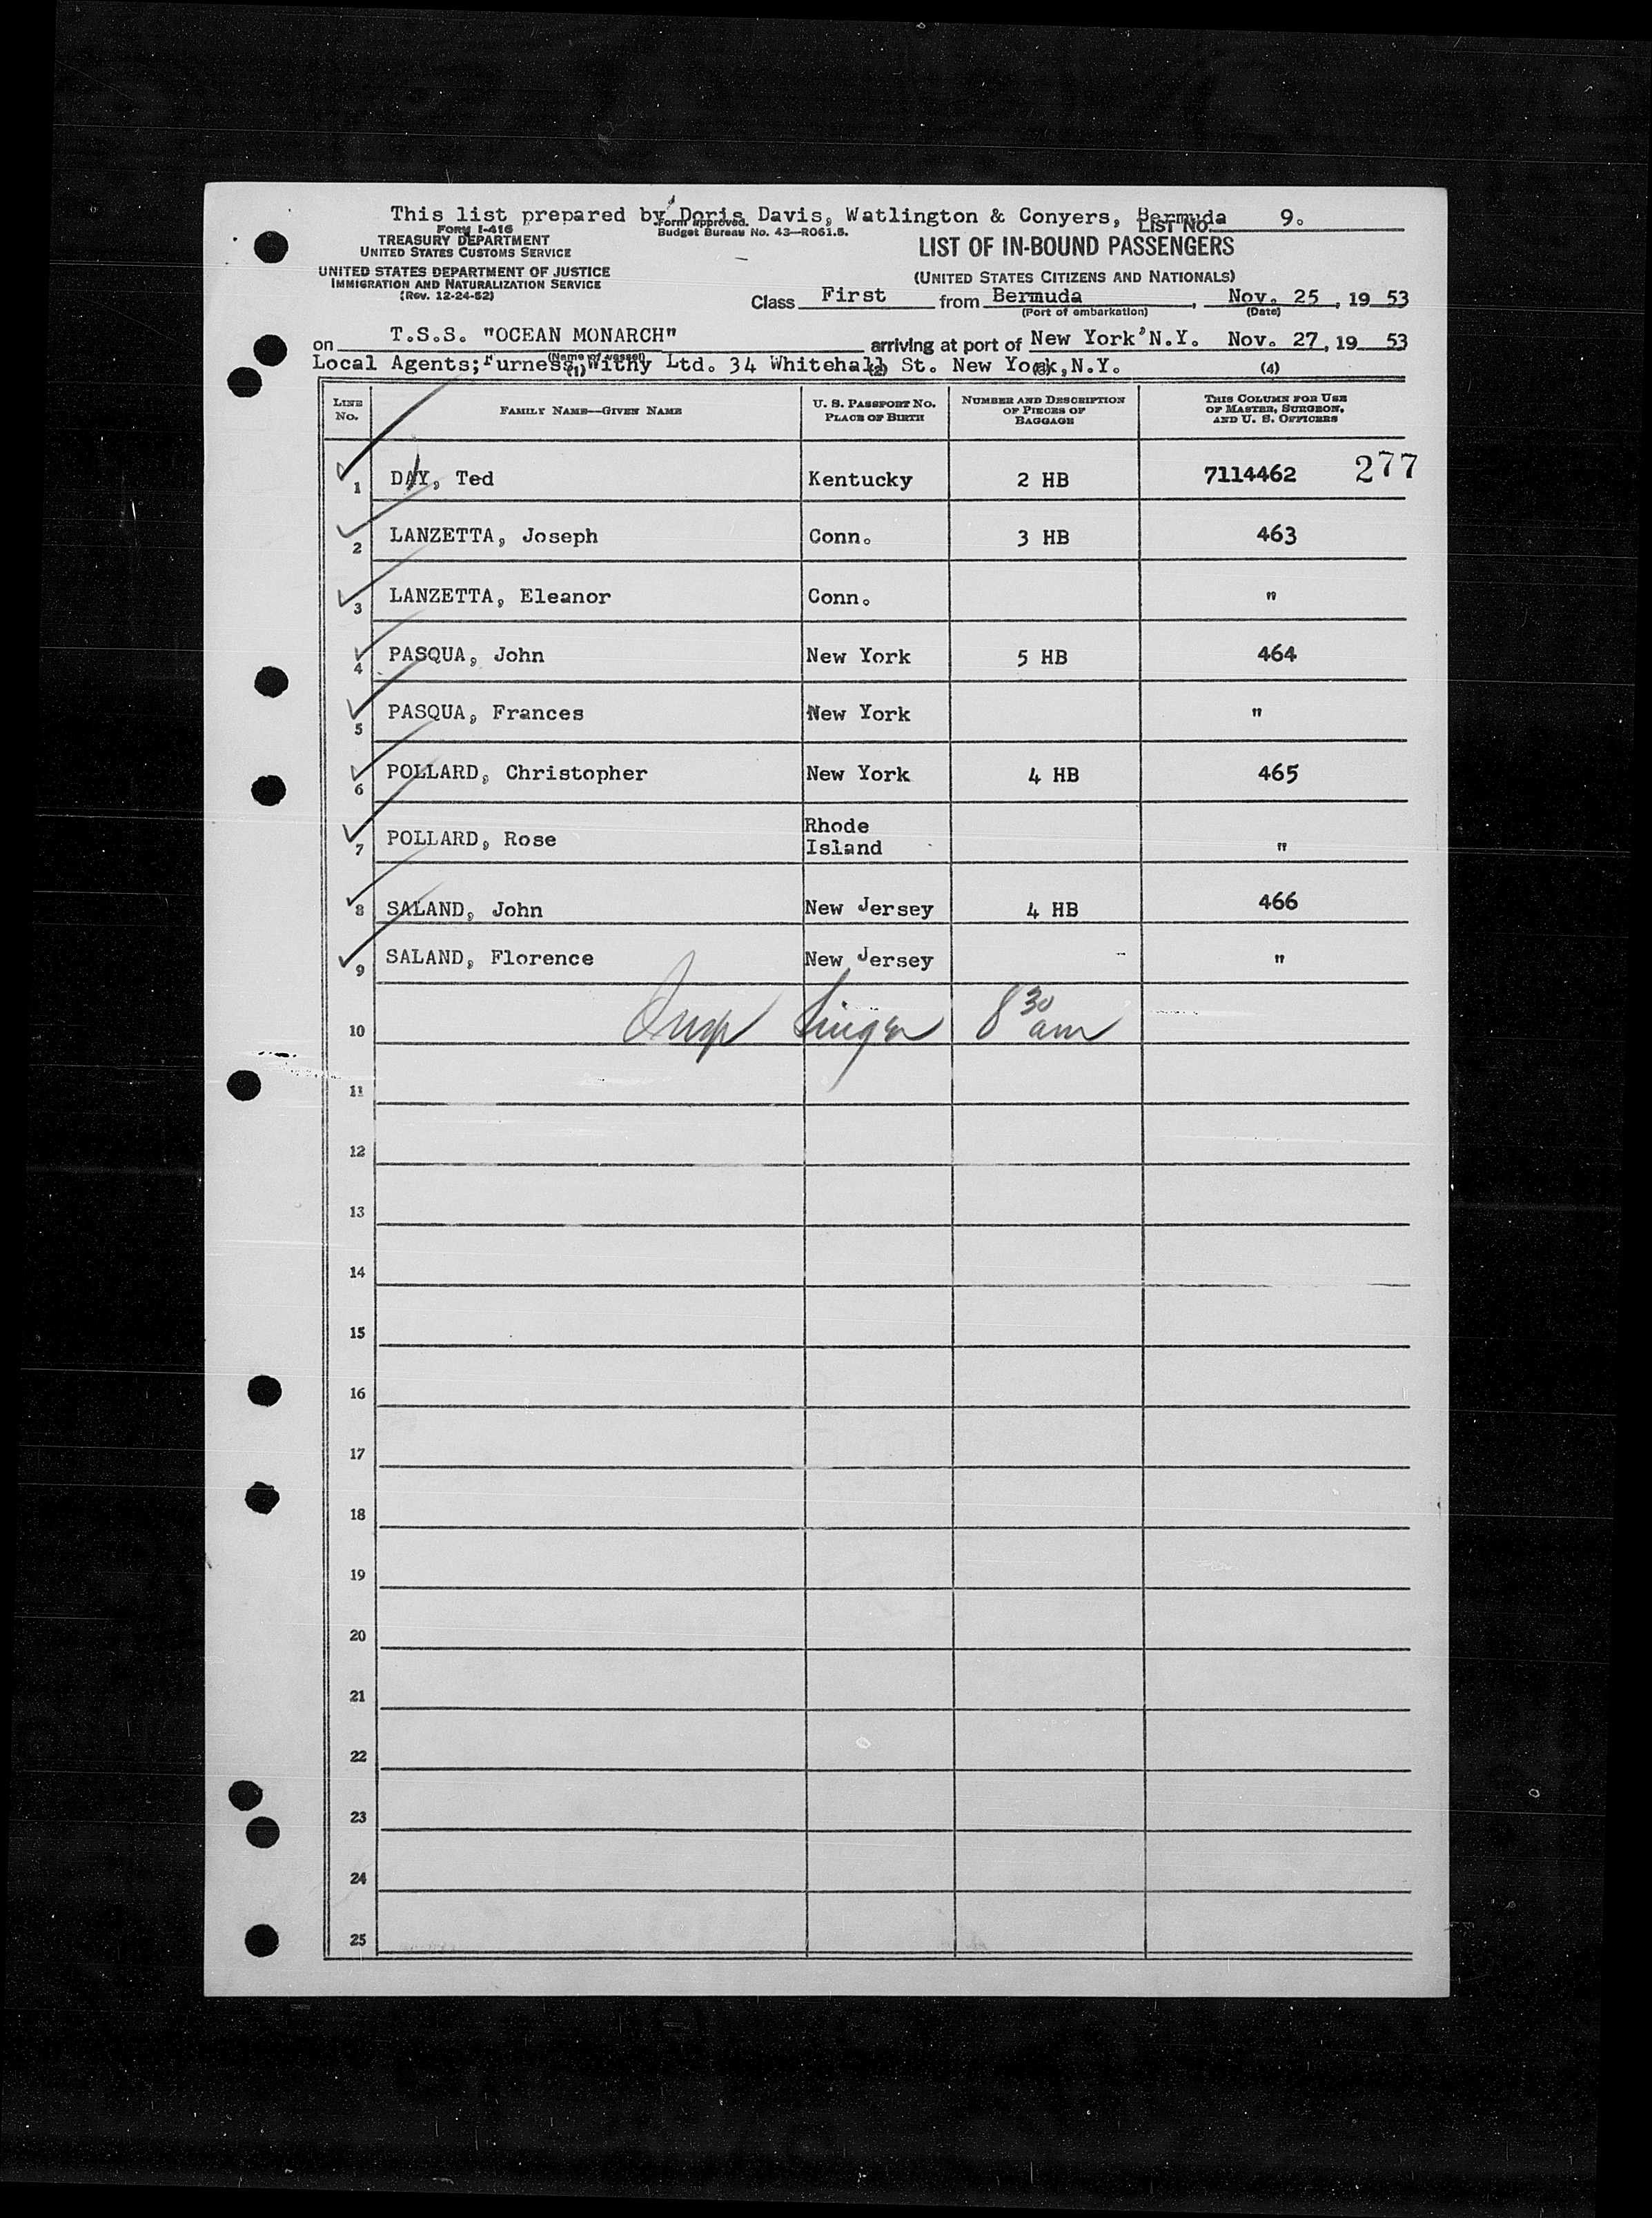 This list prepared by Doris Davis, Watlington & Conyers, Bermuda
LIST NO. 9.
FORM I-416
TREASURY DEPARTMENT
UNITED STATES CUSTOMS SERVICE
Form approved.
Budget Bureau No. 43—R061.5.
UNITED STATES DEPARTMENT OF JUSTICE
IMMIGRATION AND NATURALIZATION SERVICE
(Rev. 12-24-52)
LIST OF IN-BOUND PASSENGERS
(UNITED STATES CITIZENS AND NATIONALS)
Class First from Bermuda, Nov. 25, 19 53
(Port of embarkation) (Date)
on T.S.S. "OCEAN MONARCH" arriving at port of New York, N.Y. Nov. 27, 19 53
(Name of vessel)
Local Agents; Furness, Withy Ltd. 34 Whitehall St. New York, N.Y.
(1) (2) (3) (4)
LINE NO. FAMILY NAME—GIVEN NAME U. S. PASSPORT NO. PLACE OF BIRTH NUMBER AND DESCRIPTION OF PIECES OF BAGGAGE THIS COLUMN FOR USE OF MASTER, SURGEON, AND U. S. OFFICERS
1 DAY, Ted Kentucky 2 HB 7114462 277
2 LANZETTA, Joseph Conn. 3 HB 463
3 LANZETTA, Eleanor Conn. "
4 PASQUA, John New York 5 HB 464
5 PASQUA, Frances New York "
6 POLLARD, Christopher New York 4 HB 465
7 POLLARD, Rose Rhode Island "
8 SALAND, John New Jersey 4 HB 466
9 SALAND, Florence New Jersey "
10 Insp Singer 8 30 am
11
12
13
14
15
16
17
18
19
20
21
22
23
24
25